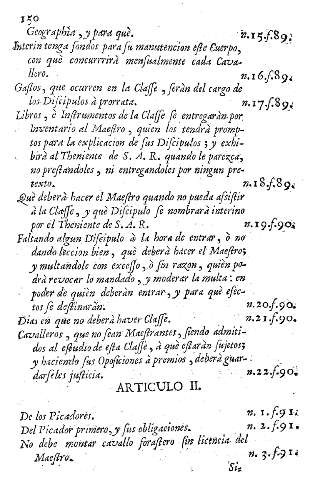 150
Geographia, y para què. n.15.f.89.
Interin tenga fondos para su manutencion este Cuerpo,
con què concurrirà mensualmente cada Cava-
llero. n.16.f.89.
Gastos, que ocurren en la Classe, seràn del cargo de
los Discipulos à prorrata. n.17.f.89.
Libros, è Instrumentos de la Classe se entregaràn por
Inventario al Maestro, quien los tendrà promp-
tos para la explicacion de sus Discipulos; y exhi-
birà al Theniente de S. A. R. quando le parezca,
no prestandoles, ni entregandoles por ningun pre-
texto. n.18.f.89.
Què deberà hacer el Maestro quando no pueda assistir
à la Classe, y què Discipulo se nombrarà interino
por el Theniente de S. A. R. n.19.f.90.
Faltando algun Discipulo à la hora de entrar, ò no
dando leccion bien, què deberà hacer el Maestro;
y multandole con excesso, ò sin razon, quien po-
drà revocar lo mandado, y moderar la multa: en
poder de quien deberàn entrar, y para què efec-
tos se destinaràn. n.20.f.90.
Dias en que no deberà haver Classe. n.21.f.90.
Cavalleros, que no sean Maestrantes, siendo admiti-
dos al estudio de esta Classe, à què estaràn sujetos;
y haciendo sus Oposiciones à premios, deberà guar-
darseles justicia. n.22.f.90.
ARTICULO II.
De los Picadores. n. 1.f.91.
Del Picador primero, y sus obligaciones. n. 2.f.91.
No debe montar cavallo forastero sin licencia del
Maestro. n. 3.f.91.
Si: